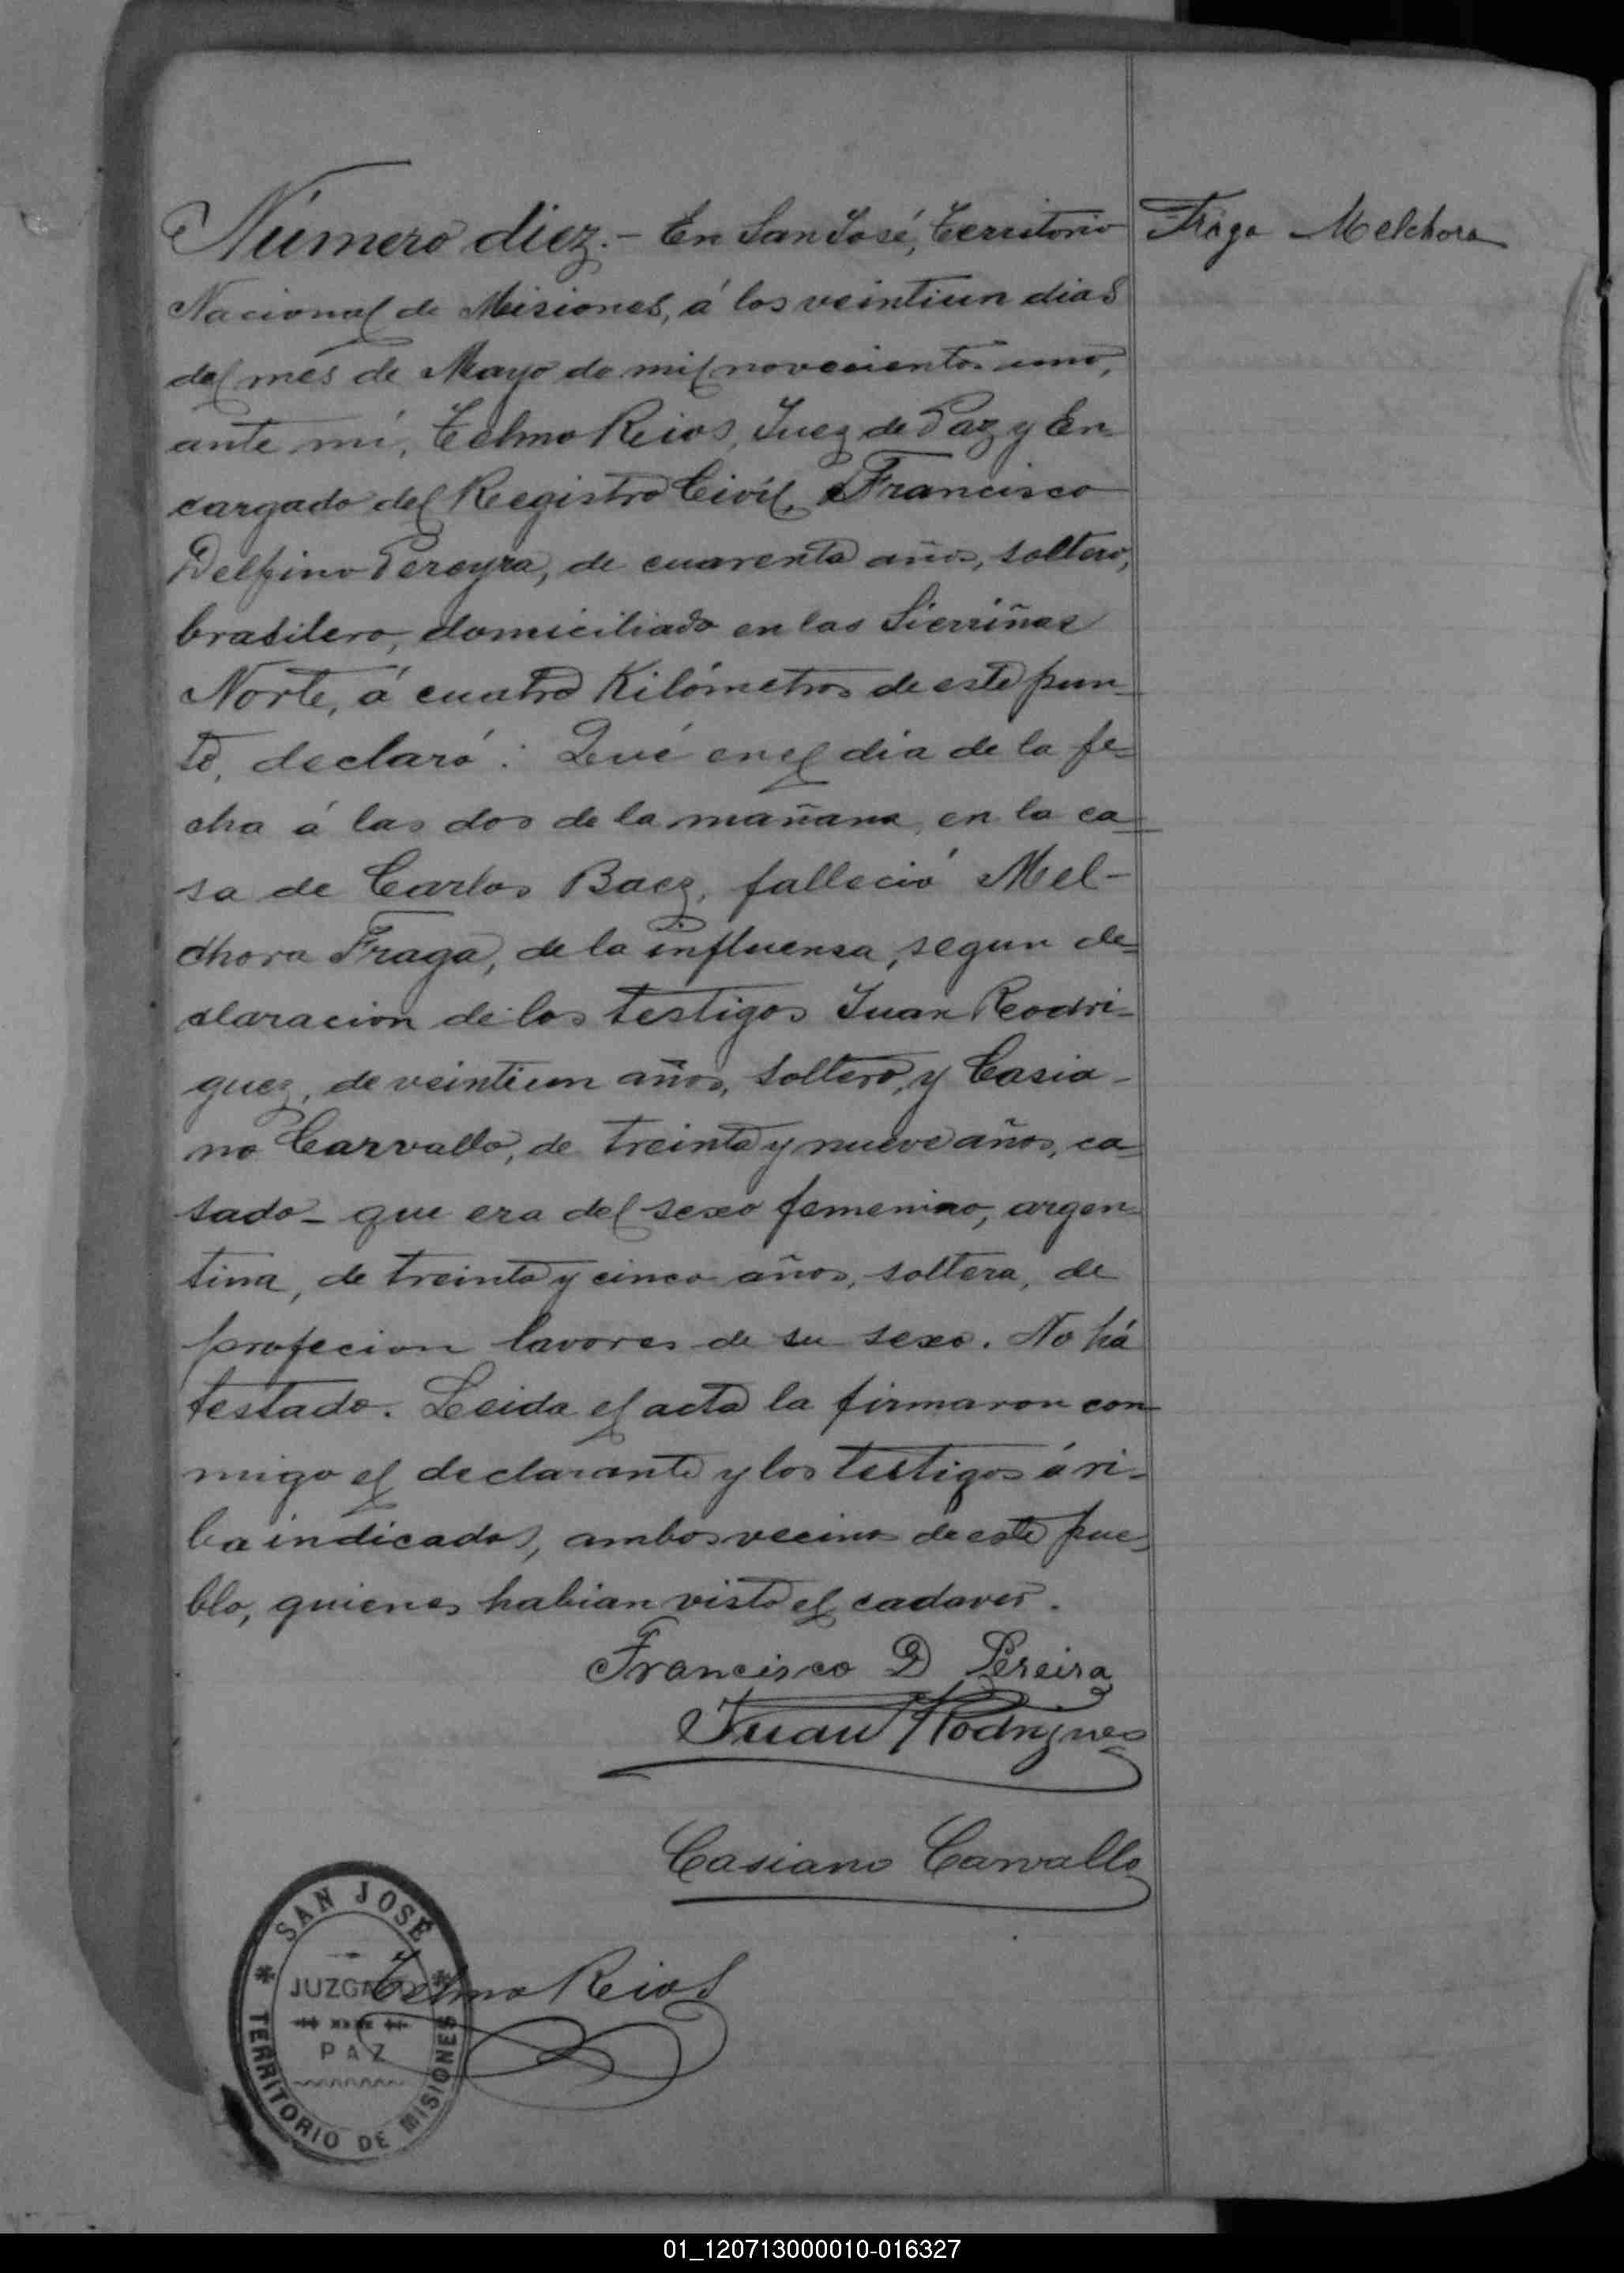 Número diez.- En San José, Territorio
Nacional de Misiones, á los veintiun dias
del mes de Mayo de mil novecientos uno,
ante mí, Telmo Reios, Juez de Paz y En
cargado del Registro Civil, Francisco
Delfino Pereyra, de cuarenta años, soltero,
brasilero, domiciliado en las Sierriñas
Norte, á cuatro Kilómetros de este pun-
to, declaró: Qué en el dia de la fe-
cha á las dos de la mañana, en la ca-
sa de Carlos Baez, falleció Mel-
chora Fraga, de la influensa, segun de-
claracion de los testigos Juan Rodri-
guez, de veintiun años, soltero, y Casia-
no Carvallo, de treinta y nueve años, ca-
sado- que era del sexo femenino, argen-
tina, de treinta y cinco años, soltera, de
profecion lavores de su sexo. No há
testado. Leida el acta la firmaron con-
migo el declarante y los testigos á ri-
ba indicados, ambos vecinos de este pue-
blo, quienes habian visto el cadaver.
Francisco D Pereira
Juan Rodrigues
Casiano Carvallo
Telmo Reios
Fraga Melchora
SAN JOSÉ
JUZGADO
PAZ
TERRITORIO DE MISIONES
01_120713000010-016327